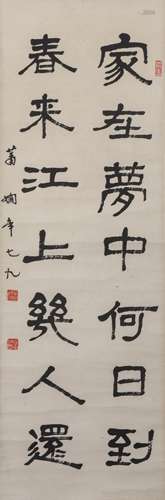 家在夢中何日到
春来江上幾人還
萧娴年七九